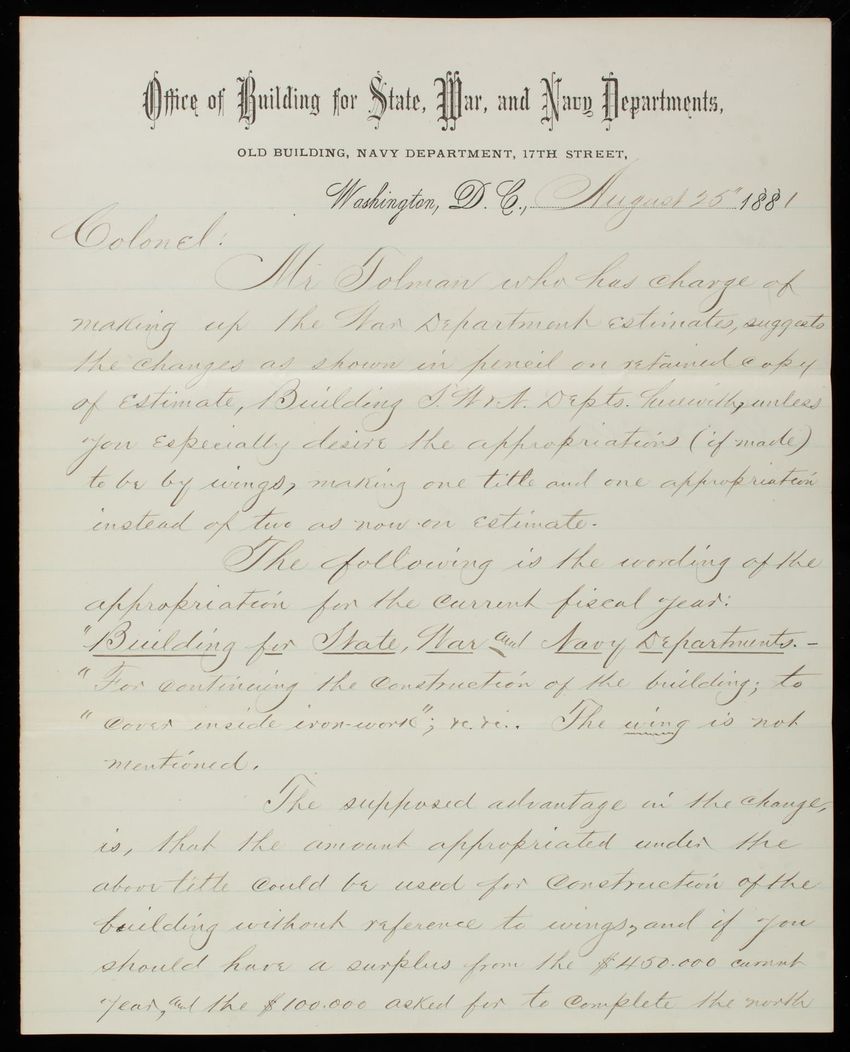 Office of Building for State, War, and Navy Departments,
OLD BUILDING, NAVY DEPARTMENT, 17TH STREET,
Washington, D. C., August 25" 1881
Colonel:
Mr Tolman who has charge of
making up the War Department estimates, suggests
the changes as shown in pencil on retained copy
of estimate, Building S. W. & N. Depts. herewith, unless
you especially desire the appropriations (if made)
to be by wings, making one title and one appropriation
instead of two as now on estimate.
The following is the wording of the
appropriation for the current fiscal year:
"Building for State, War and Navy Departments.-
"For continuing the construction of the building; to
"cover inside iron-work"; &c. &c.. The wing is not
mentioned.
The supposed advantage in the change,
is, that the amount appropriated under the
above title could be used for construction of the
building without reference to wings, and if you
should have a surplus from the $450.000 current
year, and the $100.000 asked for to complete the north